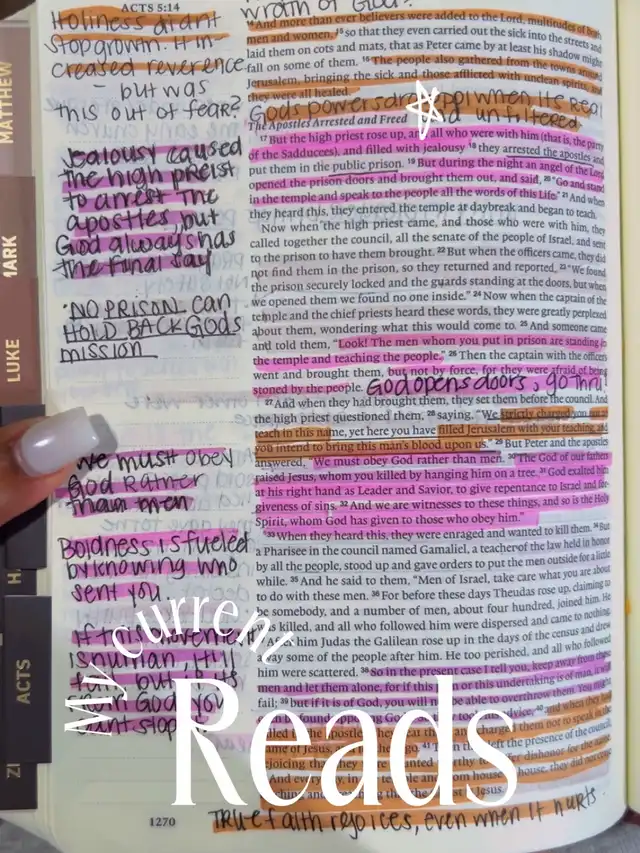 ACTS 5:14
wrath of God?
Holiness didnt
stop growth. It in-
creased reverence
– but was
this out of fear?
Jealousy caused
the high preist
to arrest the
apostles, but
God always has
the final say
·NO PRISON can
HOLD BACK Gods
mission
We must obey
God Rather
than men
Boldness is fueled
by knowing who
sent you.
If this
is human, it'll
but if its
God, you
cant stop
14 And more than ever believers were added to the Lord, multitudes of both
men and women, 15 so that they even carried out the sick into the streets and
laid them on cots and mats, that as Peter came by at least his shadow might
fall on some of them. 16 The people also gathered from the towns around
Jerusalem, bringing the sick and those afflicted with unclean spirits, and
they were all healed.
Gods powers are when its Real
unfiltered
The Apostles Arrested and Freed
17 But the high priest rose up, and all who were with him (that is, the party
of the Sadducees), and filled with jealousy 18 they arrested the apostles and
put them in the public prison. 19 But during the night an angel of the Lord
opened the prison doors and brought them out, and said, 20 “Go and stand
in the temple and speak to the people all the words of this Life.” 21 And when
they heard this, they entered the temple at daybreak and began to teach.
Now when the high priest came, and those who were with him, they
called together the council, all the senate of the people of Israel, and sent
to the prison to have them brought. 22 But when the officers came, they did
not find them in the prison, so they returned and reported, 23 “We found
the prison securely locked and the guards standing at the doors, but when
we opened them we found no one inside.” 24 Now when the captain of the
temple and the chief priests heard these words, they were greatly perplexed
about them, wondering what this would come to. 25 And someone came
and told them, “Look! The men whom you put in prison are standing in
the temple and teaching the people.” 26 Then the captain with the officers
went and brought them, but not by force, for they were afraid of being
stoned by the people.
God opens doors, go thru!
27 And when they had brought them, they set them before the council. And
the high priest questioned them, 28 saying, “We strictly charged you not to
teach in this name, yet here you have filled Jerusalem with your teaching, and
you intend to bring this man's blood upon us.” 29 But Peter and the apostles
answered, “We must obey God rather than men. 30 The God of our fathers
raised Jesus, whom you killed by hanging him on a tree. 31 God exalted him
at his right hand as Leader and Savior, to give repentance to Israel and for-
giveness of sins. 32 And we are witnesses to these things, and so is the Holy
Spirit, whom God has given to those who obey him.”
33 When they heard this, they were enraged and wanted to kill them. 34 But
a Pharisee in the council named Gamaliel, a teacher of the law held in honor
by all the people, stood up and gave orders to put the men outside for a little
while. 35 And he said to them, “Men of Israel, take care what you are about
to do with these men. 36 For before these days Theudas rose up, claiming to
be somebody, and a number of men, about four hundred, joined him. He
was killed, and all who followed him were dispersed and came to nothing.
After him Judas the Galilean rose up in the days of the census and drew
away some of the people after him. He too perished, and all who followed
him were scattered. 38 So in the present case I tell you, keep away from these
men and let them alone, for if this or this undertaking is of man, it will
fail; 39 but if it is of God, you will be able to overthrow them. You might
found opposing took advice, 40 and when they had
called the apostles, they beat them and charged them not to speak in the
name of Jesus, go. 41 Then left the presence of the council,
rejoicing that they were counted worthy to suffer dishonor for the name.
And every day, in temple and from house house, they did not cease
teaching and Jesus.
TRUE faith rejoices, even when it hurts.
1270
MATTHEW
MARK
LUKE
ACTS
My current
Reads